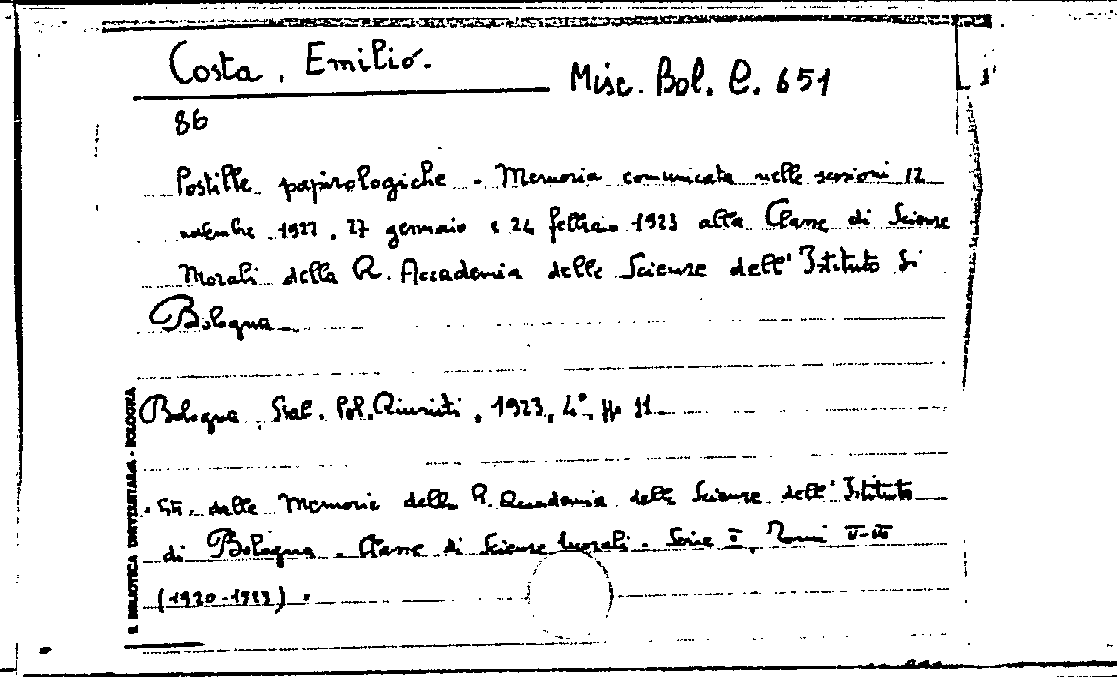 Costa, Emilio.
Misc. Bol. C. 651
86
Postille papirologiche - Memoria comunicata nelle sessioni 12
novembre 1922, 27 gennaio e 24 febbraio 1923 alla Classe di Scienze
Morali della R. Accademia delle Scienze dell' Istituto di
Bologna
Bologna, Stab. Pol. Riuniti, 1923, 4°, pp 11
dalle Memorie della R. Accademia delle Scienze dell' Istituto
di Bologna - Classe di Scienze Morali - Serie II, Tomi
(1920-1923).
R. BIBLIOTECA UNIVERSITARIA - BOLOGNA